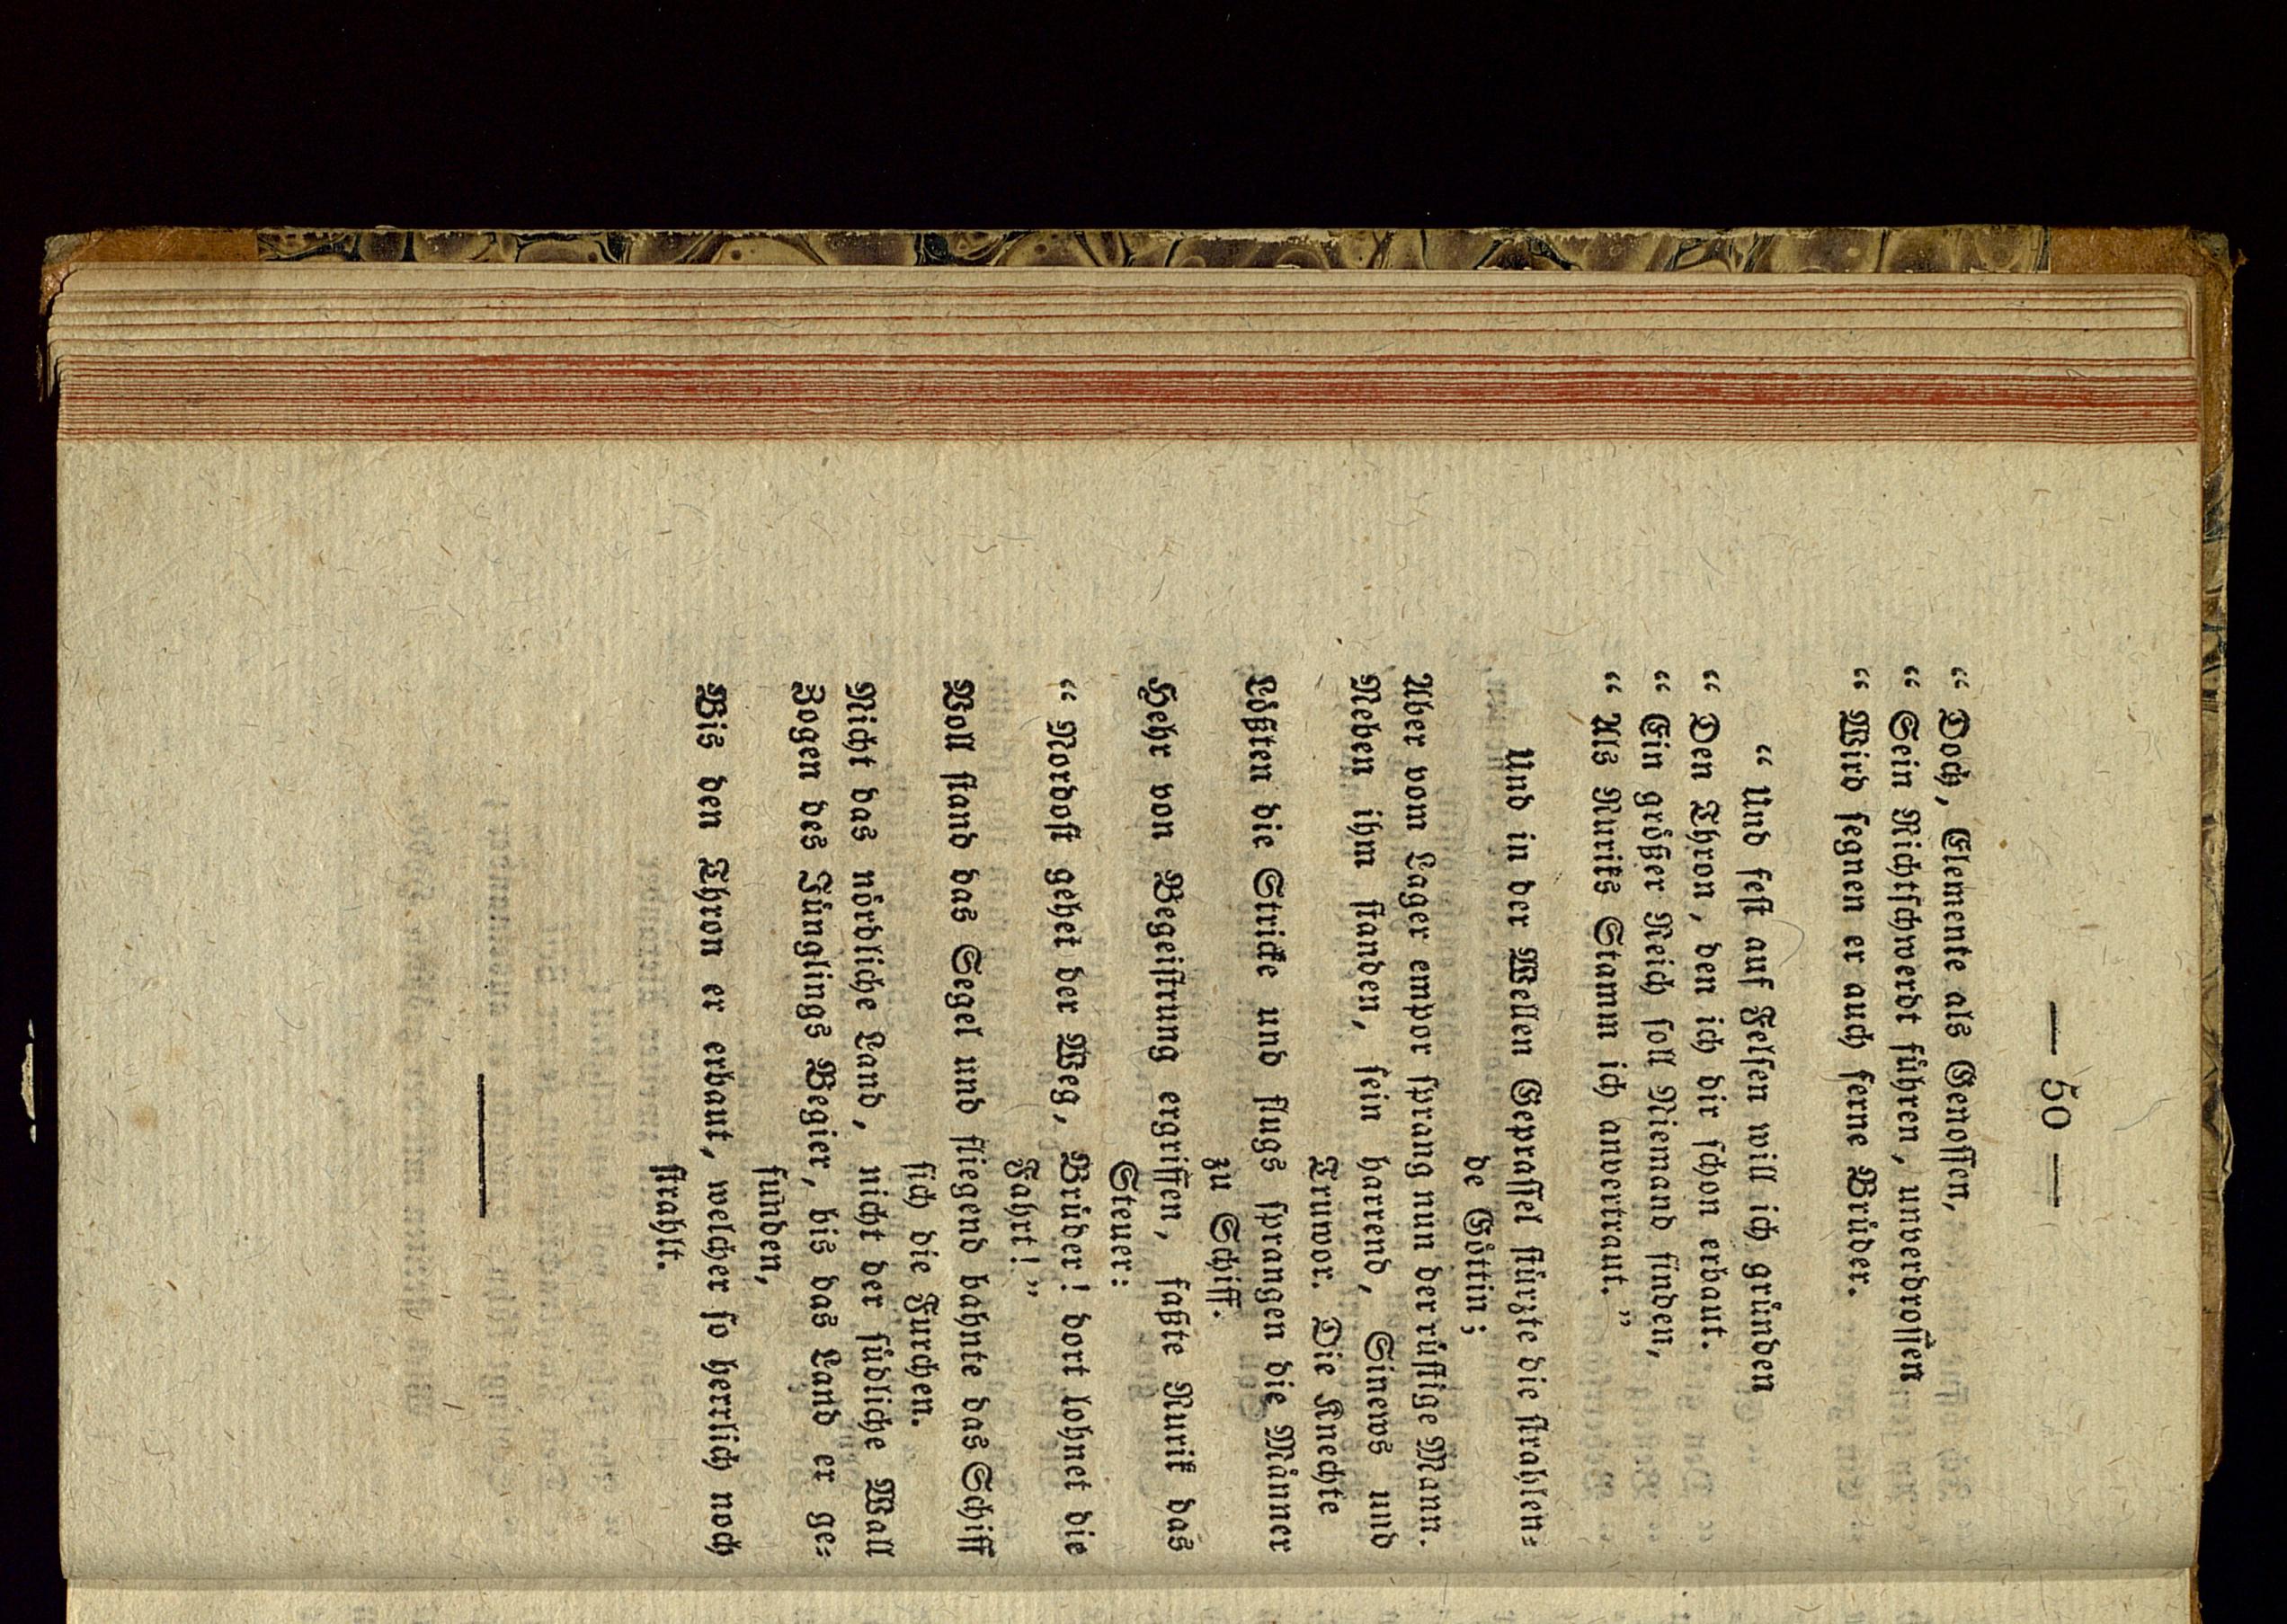 — 50 —
“ Doch, Elemente als Genossen,
“ Sein Richtschwerdt führen, unverdrossen
“ Wird segnen er auch ferne Brüder.
“ Und fest auf Felsen will ich gründen
“ Den Thron, den ich dir schon erbaut.
“ Ein größer Reich soll Niemand finden,
“ Als Ruriks Stamm ich anvertraut. ”
Und in der Wellen Geprassel stürzte die strahlen-
de Göttin;
Aber vom Lager empor sprang nun der rüstige Mann.
Neben ihm standen, sein harrend, Sinews und
Truwor. Die Knechte
Lößten die Stricke und flugs sprangen die Männer
zu Schiff.
Hehr von Begeistrung ergriffen, faßte Rurik das
Steuer:
“ Nordost gehet der Weg, Brüder! dort lohnet die
Fahrt! ”
Voll stand das Segel und fliegend bahnte das Schiff
sich die Furchen.
Nicht das nördliche Land, nicht der südliche Wall
Bogen des Jünglings Begier, bis das Land er ge-
funden,
Bis den Thron er erbaut, welcher so herrlich noch
strahlt.